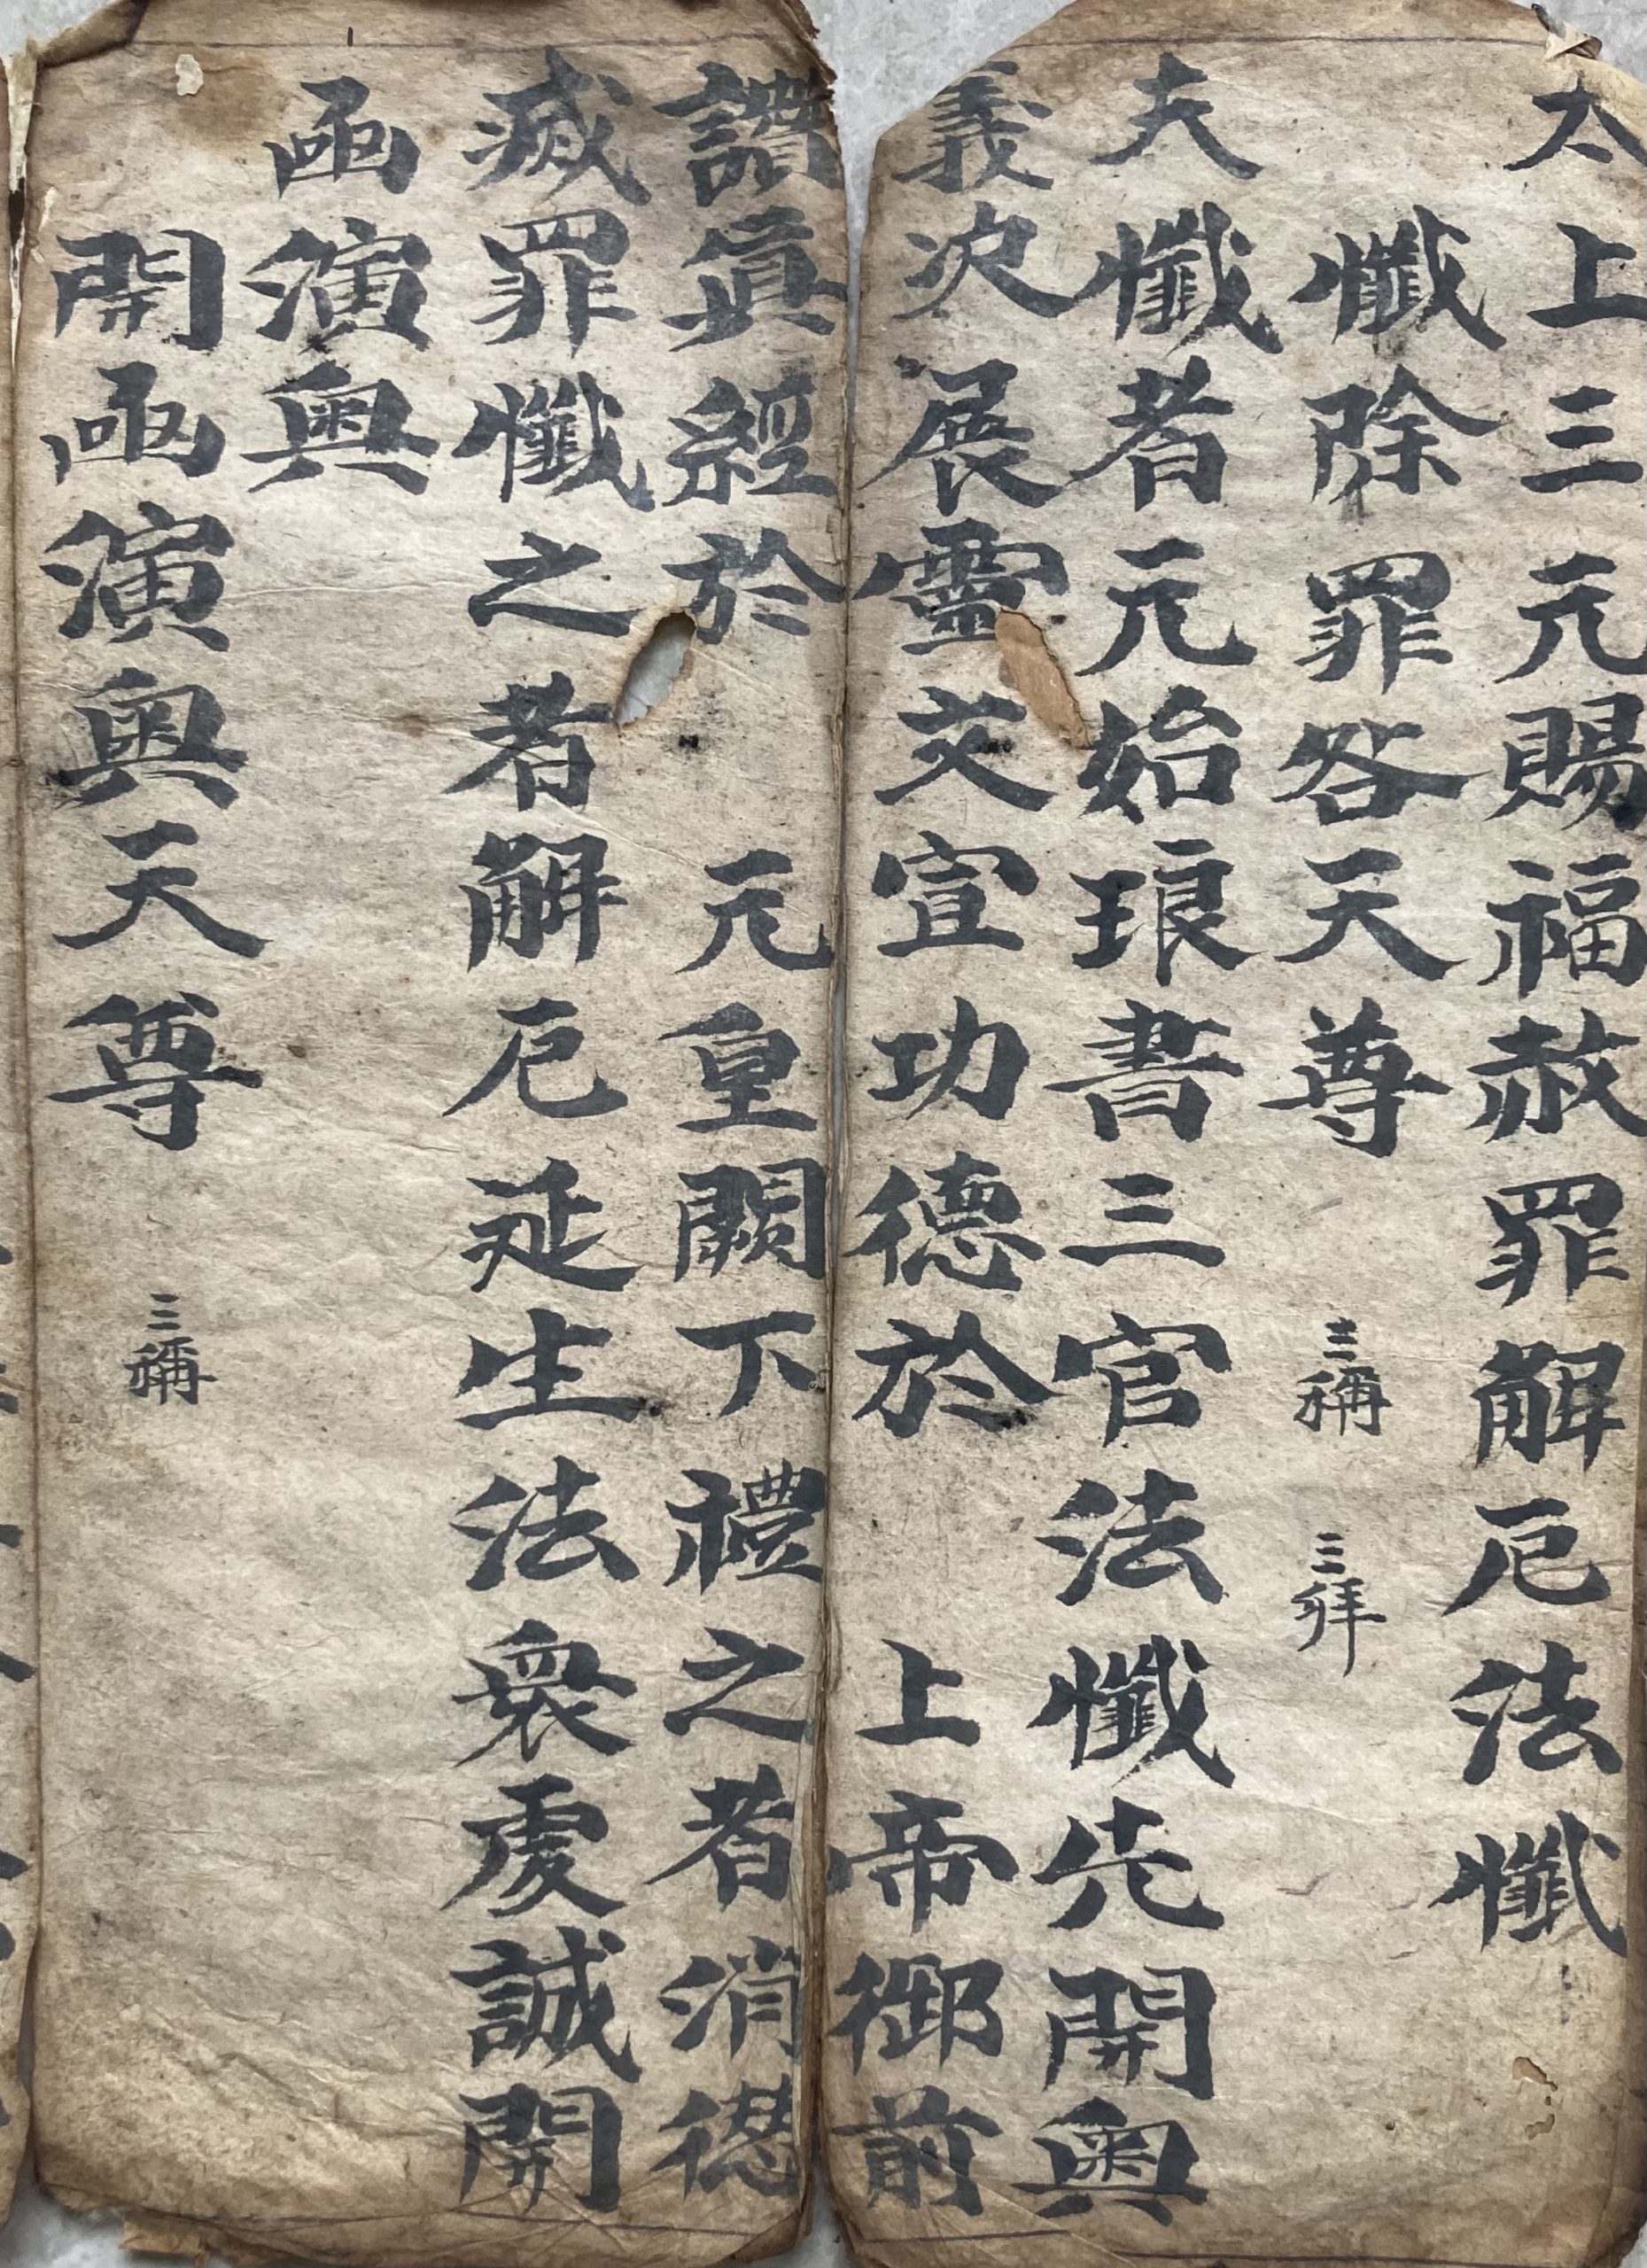 太上三元賜福赦罪解厄法懺
懺除罪咎天尊 三稱 三拜
夫懺者元始琅書三官法懺先開奧
義次展靈文宣功德於 上帝御前
讚眞經於 元皇闕下禮之者消愆
滅罪懺之者解厄延生法衆虔誠開
函演奧
開函演奧天尊 三稱